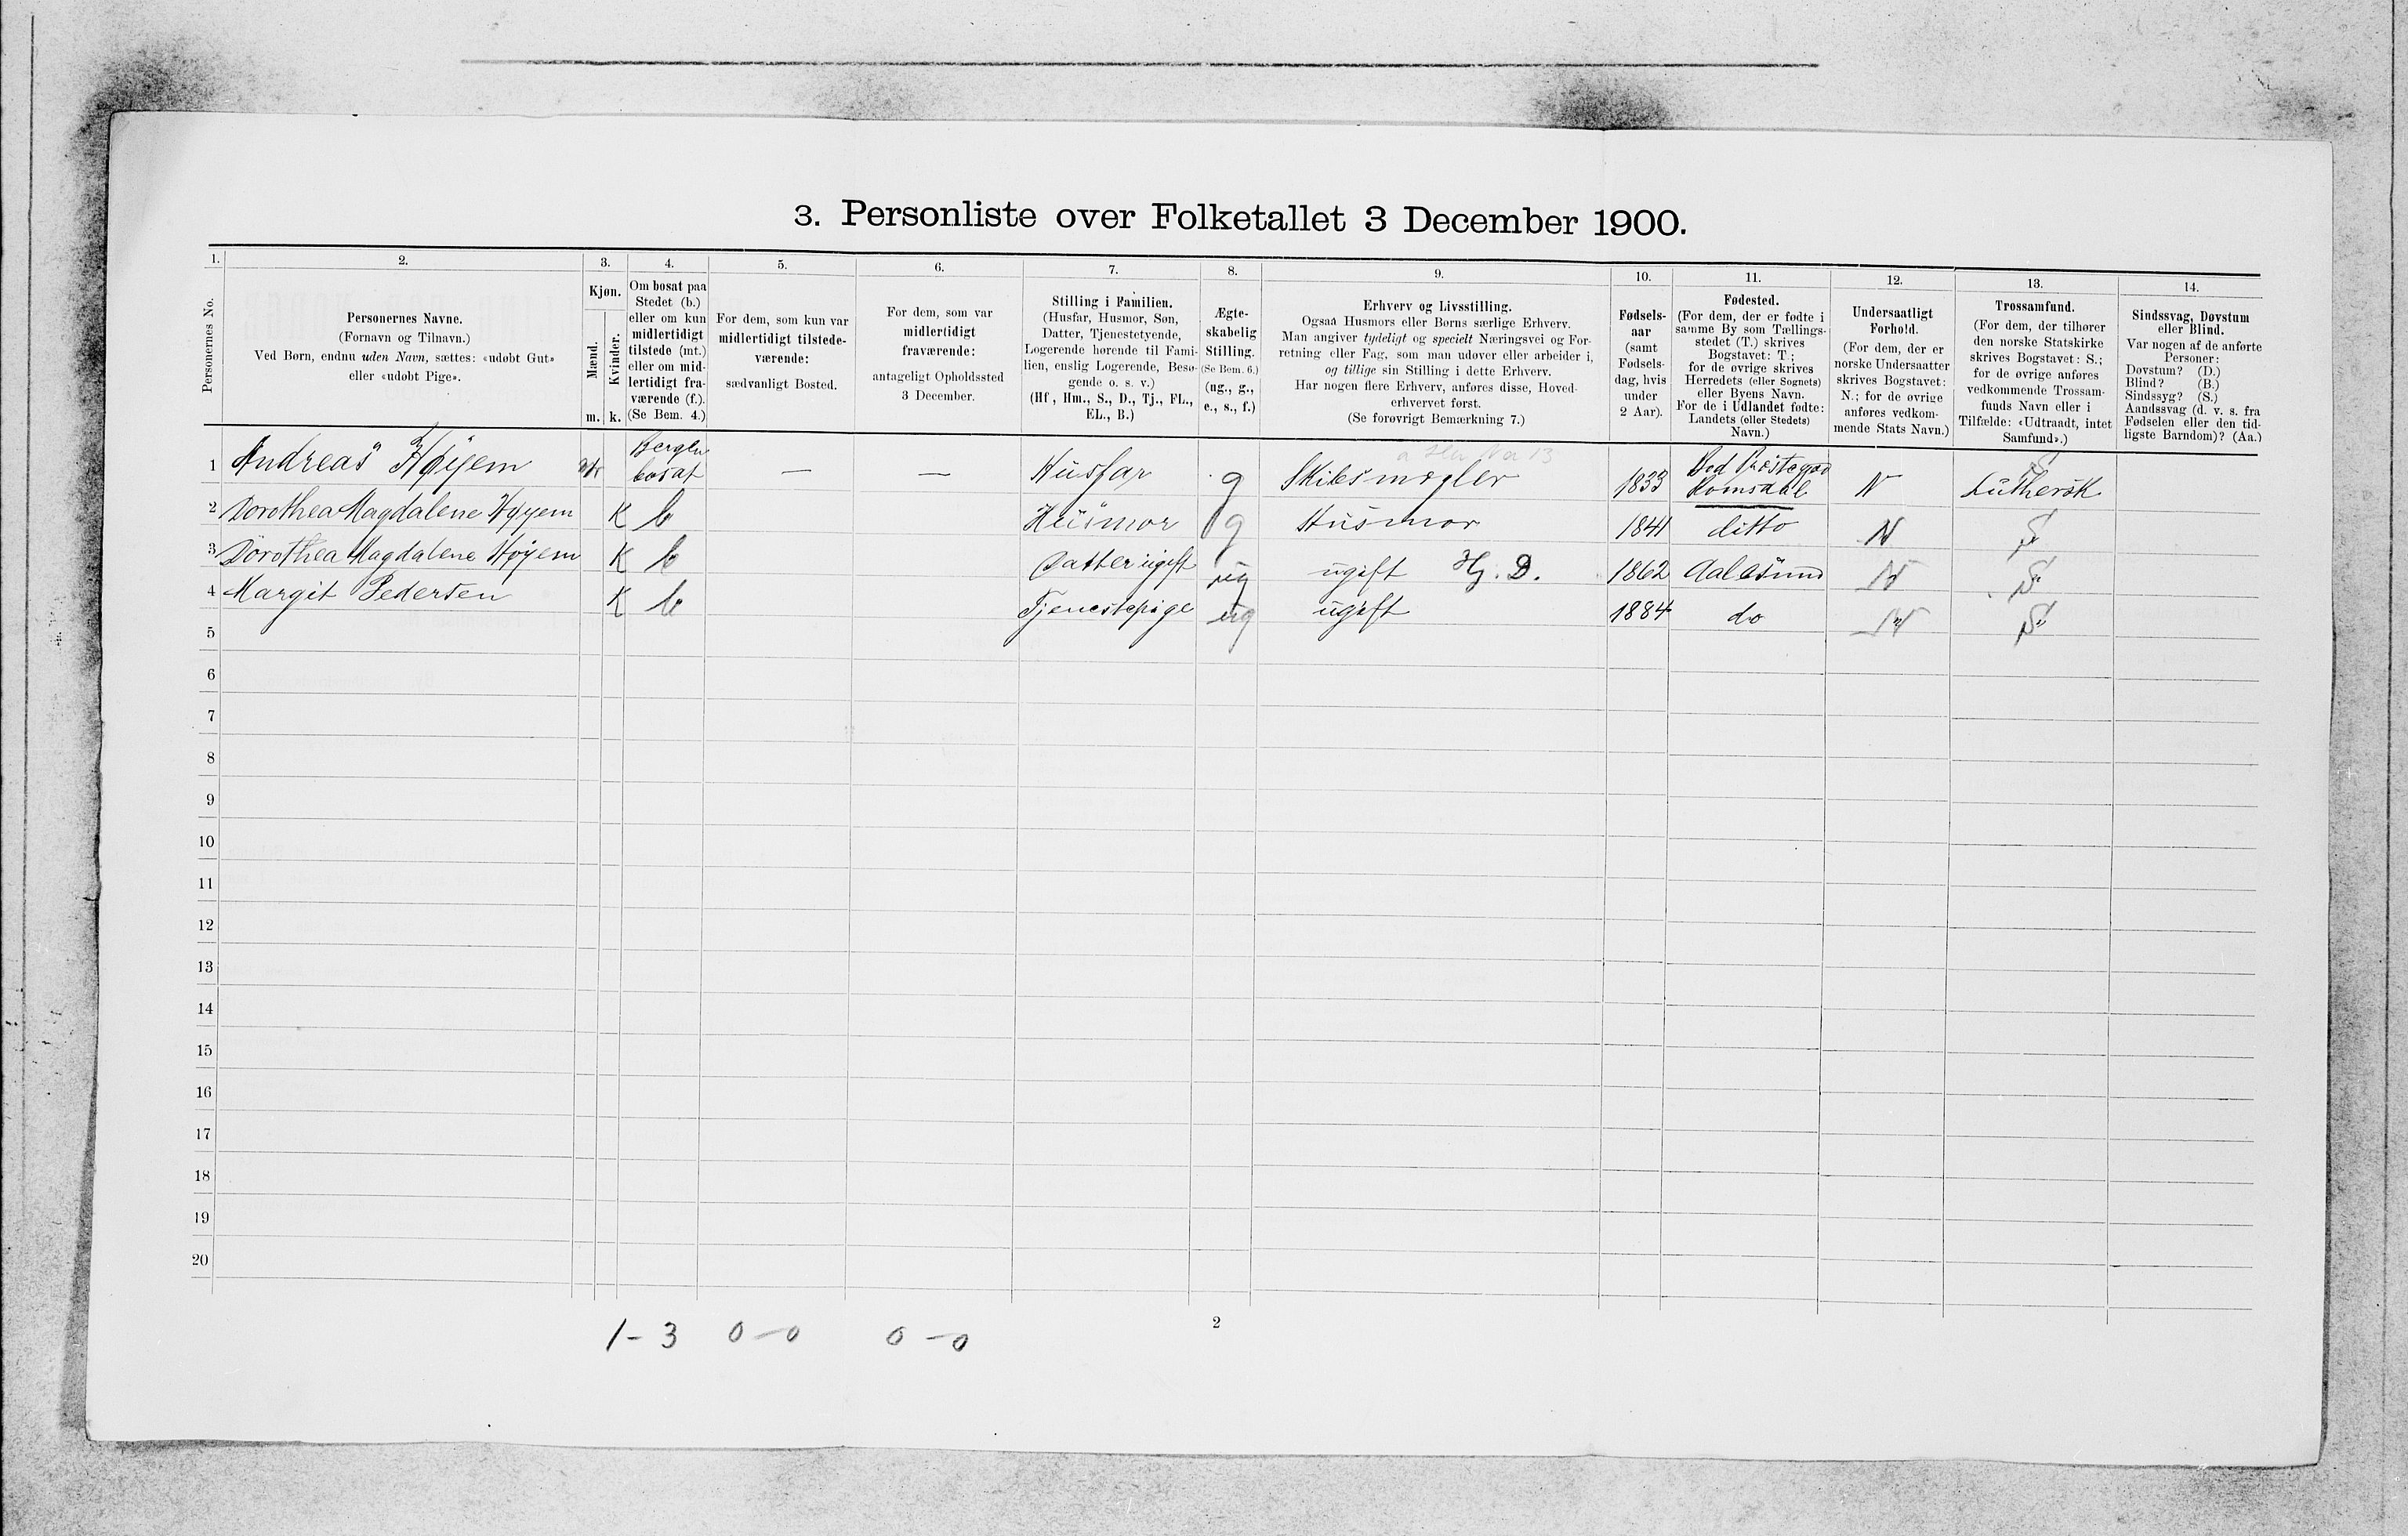 3. Personliste over Folketallet 3 December 1900.
1. 2. 3. 4. 5. 6. 7. 8. 9. 10. 11. 12. 13. 14.
Personernes No.
Personernes Navne.
(Fornavn og Tilnavn.)
Ved Børn, endnu uden Navn, sættes: «udøbt Gut»
eller «udøbt Pige».
Kjøn.
Mænd.
Kvinder.
m. k.
Om bosat paa
Stedet (b.)
eller om kun
midlertidigt
tilstede (mt.)
eller om mid-
lertidigt fra-
værende (f.).
(Se Bem. 4.)
For dem, som kun var
midlertidigt tilstede-
værende:
sædvanligt Bosted.
For dem, som var
midlertidigt
fraværende:
antageligt Opholdssted
3 December.
Stilling i Familien.
(Husfar, Husmor, Søn,
Datter, Tjenestetyende,
Logerende hørende til Fami-
lien, enslig Logerende, Besø-
gende o. s. v.)
(Hf., Hm., S., D., Tj., FL.,
EL., B.)
Ægte-
skabelig
Stilling.
(Se Bem. 6.)
(ug., g.,
e., s., f.)
Erhverv og Livsstilling.
Ogsaa Husmors eller Børns særlige Erhverv.
Man angiver tydeligt og specielt Næringsvei og For-
retning eller Fag, som man udøver eller arbeider i,
og tillige sin Stilling i dette Erhverv.
Har nogen flere Erhverv, anføres disse, Hoved-
erhvervet først.
(Se forøvrigt Bemærkning 7.)
Fødsels-
aar
(samt
Fødsels-
dag, hvis
under
2 Aar).
Fødested.
(For dem, der er fødte i
samme By som Tællings-
stedet (T.) skrives
Bogstavet: T.;
for de øvrige skrives
Herredets (eller Sognets)
eller Byens Navn.
For de i Udlandet fødte:
Landets (eller Stedets)
Navn.)
Undersaatligt
Forhold.
(For dem, der er
norske Undersaatter
skrives Bogstavet:
N.; for de øvrige
anføres vedkom-
mende Stats Navn.)
Trossamfund.
(For dem, der tilhører
den norske Statskirke
skrives Bogstavet: S.;
for de øvrige anføres
vedkommende Trossam-
funds Navn eller i
Tilfælde: «Udtraadt, intet
Samfund».)
Sindssvag, Døvstum
eller Blind.
Var nogen af de anførte
Personer:
Døvstum? (D.)
Blind? (B.)
Sindssyg? (S.)
Aandssvag (d. v. s. fra
Fødselen eller den tid-
ligste Barndom)? (Aa.)
1 Andreas Høyem m Bergen bosat — — Husfar g Skibsmægler 1833 Bod Præstegjæld Romsdal N Luthersk S
2 Dorothea Magdalene Høyem K b Husmor g Husmor 1841 ditto N S
3 Dorothea Magdalene Høyem K b Datter ugift ug ugift Hj. D. 1862 Aalesund N S
4 Margit Pedersen K b Tjenestepige ug ugift 1884 do N S
5
6
7
8
9
10
11
12
13
14
15
16
17
18
19
20
1-3 0-0 0-0
2